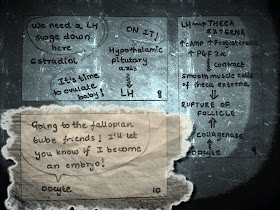 We need a LH
surge down
here
Estradiol
ON IT!
Hypothalamic
pituitary
axis
It's time
to ovulate
baby!
LH
8
LH → THECA
EXTERNA
↑ cAMP ↑ Progesterone
↑ PGF 2α
contract
smooth muscle cells
of theca externa
RUPTURE OF
FOLLICLE
↑ collagenase
oocyte
9
Going to the fallopian
tube friends! I'll let
you know if I become
an embryo!
oocyte
10